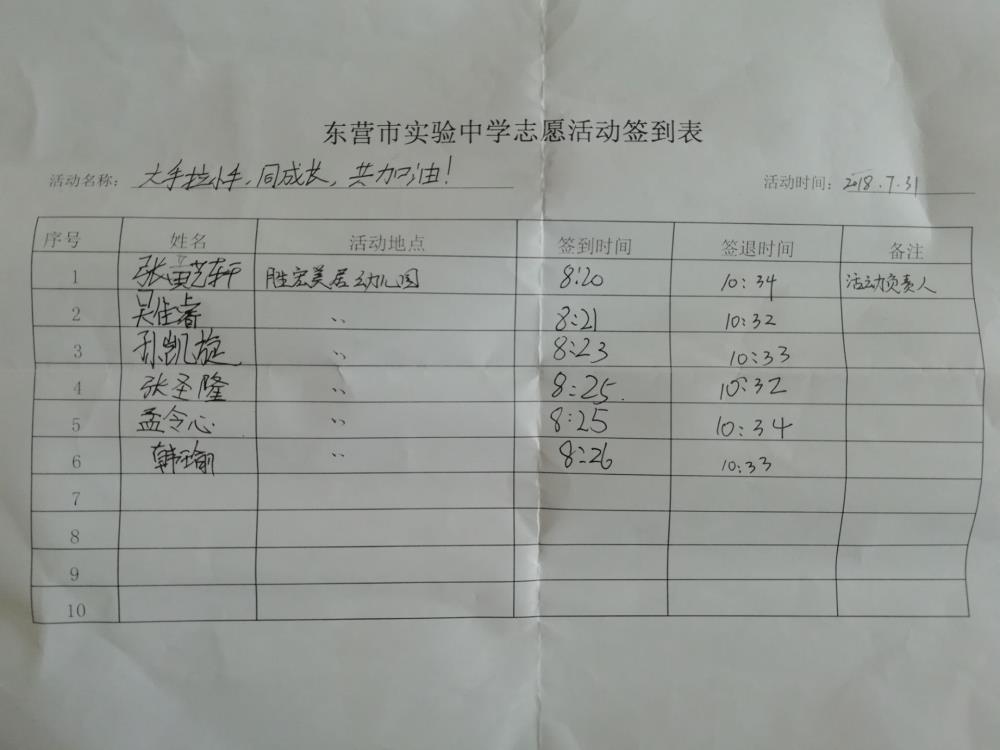 东营市实验中学志愿活动签到表
活动名称: 大手拉小手,同成长,共加油!
活动时间: 2018.7.31
序号 姓名 活动地点 签到时间 签退时间 备注
1 张 轩 胜宏美居幼儿园 8:20 10:34 活动负责人
2 吴佳睿 〃 8:21 10:32
3 孙凯旋 〃 8:23 10:33
4 张圣隆 〃 8:25. 10:32
5 孟令心 〃 8:25 10:34
6 韩瑜 〃 8:26 10:33
7
8
9
10